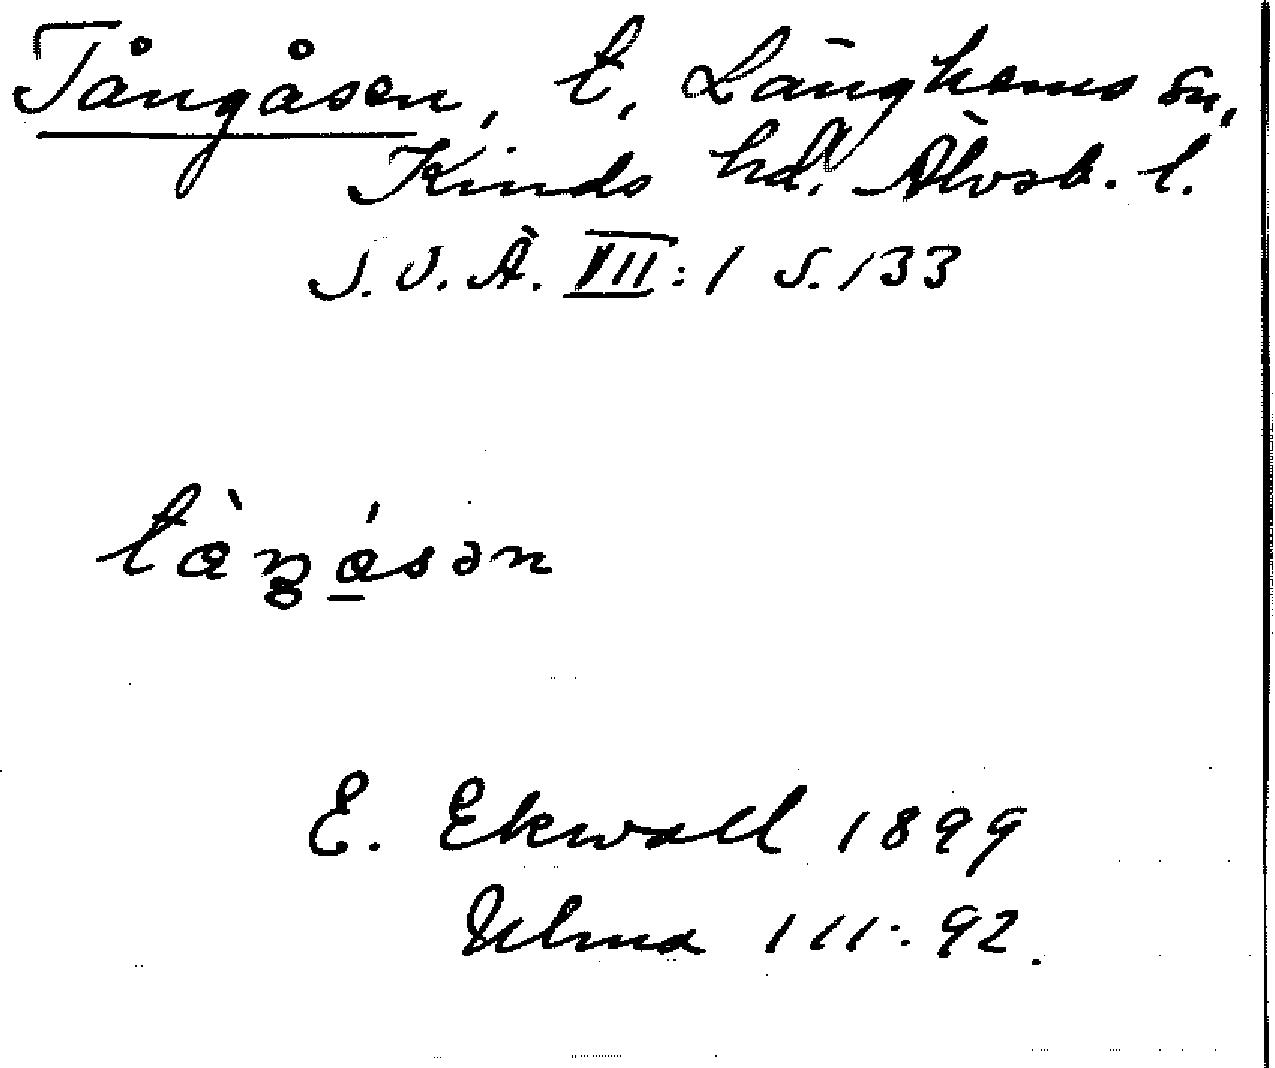 Tångåsen, t, Länghems sn,
Kinds hd. Älvsb. l.
S. O. Ä. VII: 1 S. 133
E. Ekwall 1899
Ulma 111:92.